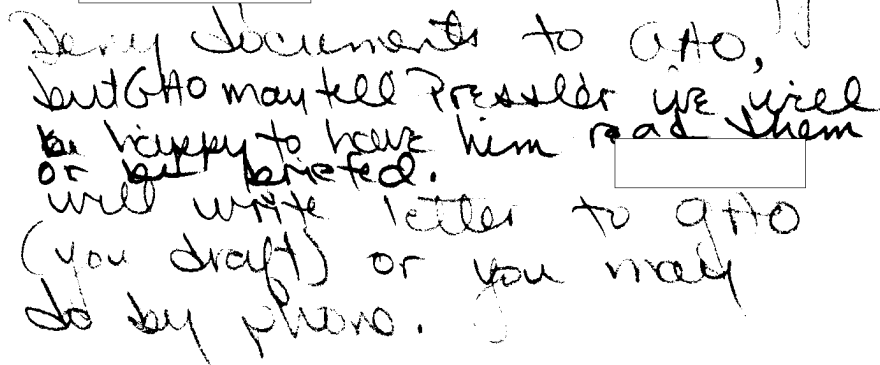 Deny documents to GAO,
but GAO may tell Pressler we will
be happy to have him read them
or be briefed.
will write letter to GAO
(you draft) or you may
do by phone.